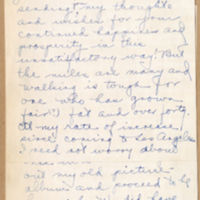 sending my thoughts
and wishes for your
continued happiness and
prosperity in this
unsatisfactory way! But
the miles are many and
walking is tough for
one who has grown
fair! fat and over forty.
At my rate of increase
since coming to Los Angeles
I need not worry about
out my old picture
album and proceed to be
did have